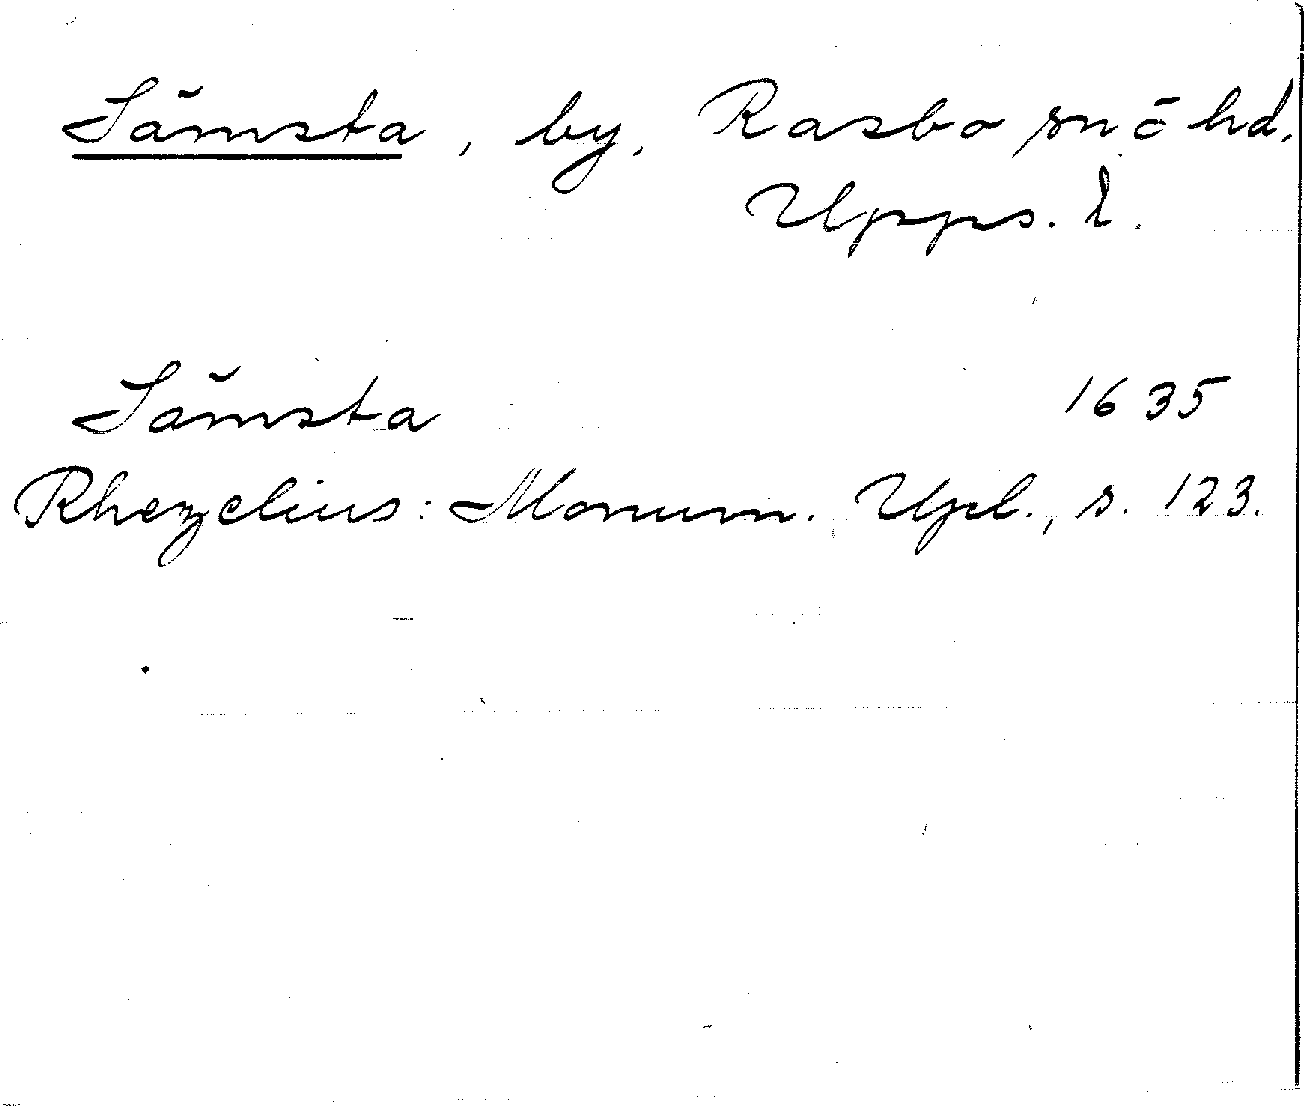 Sämsta, by, Rasbo sn ō hd,
Upps. l.
Sämsta 1635
Rhezelius: Monum. Upl., s. 123.